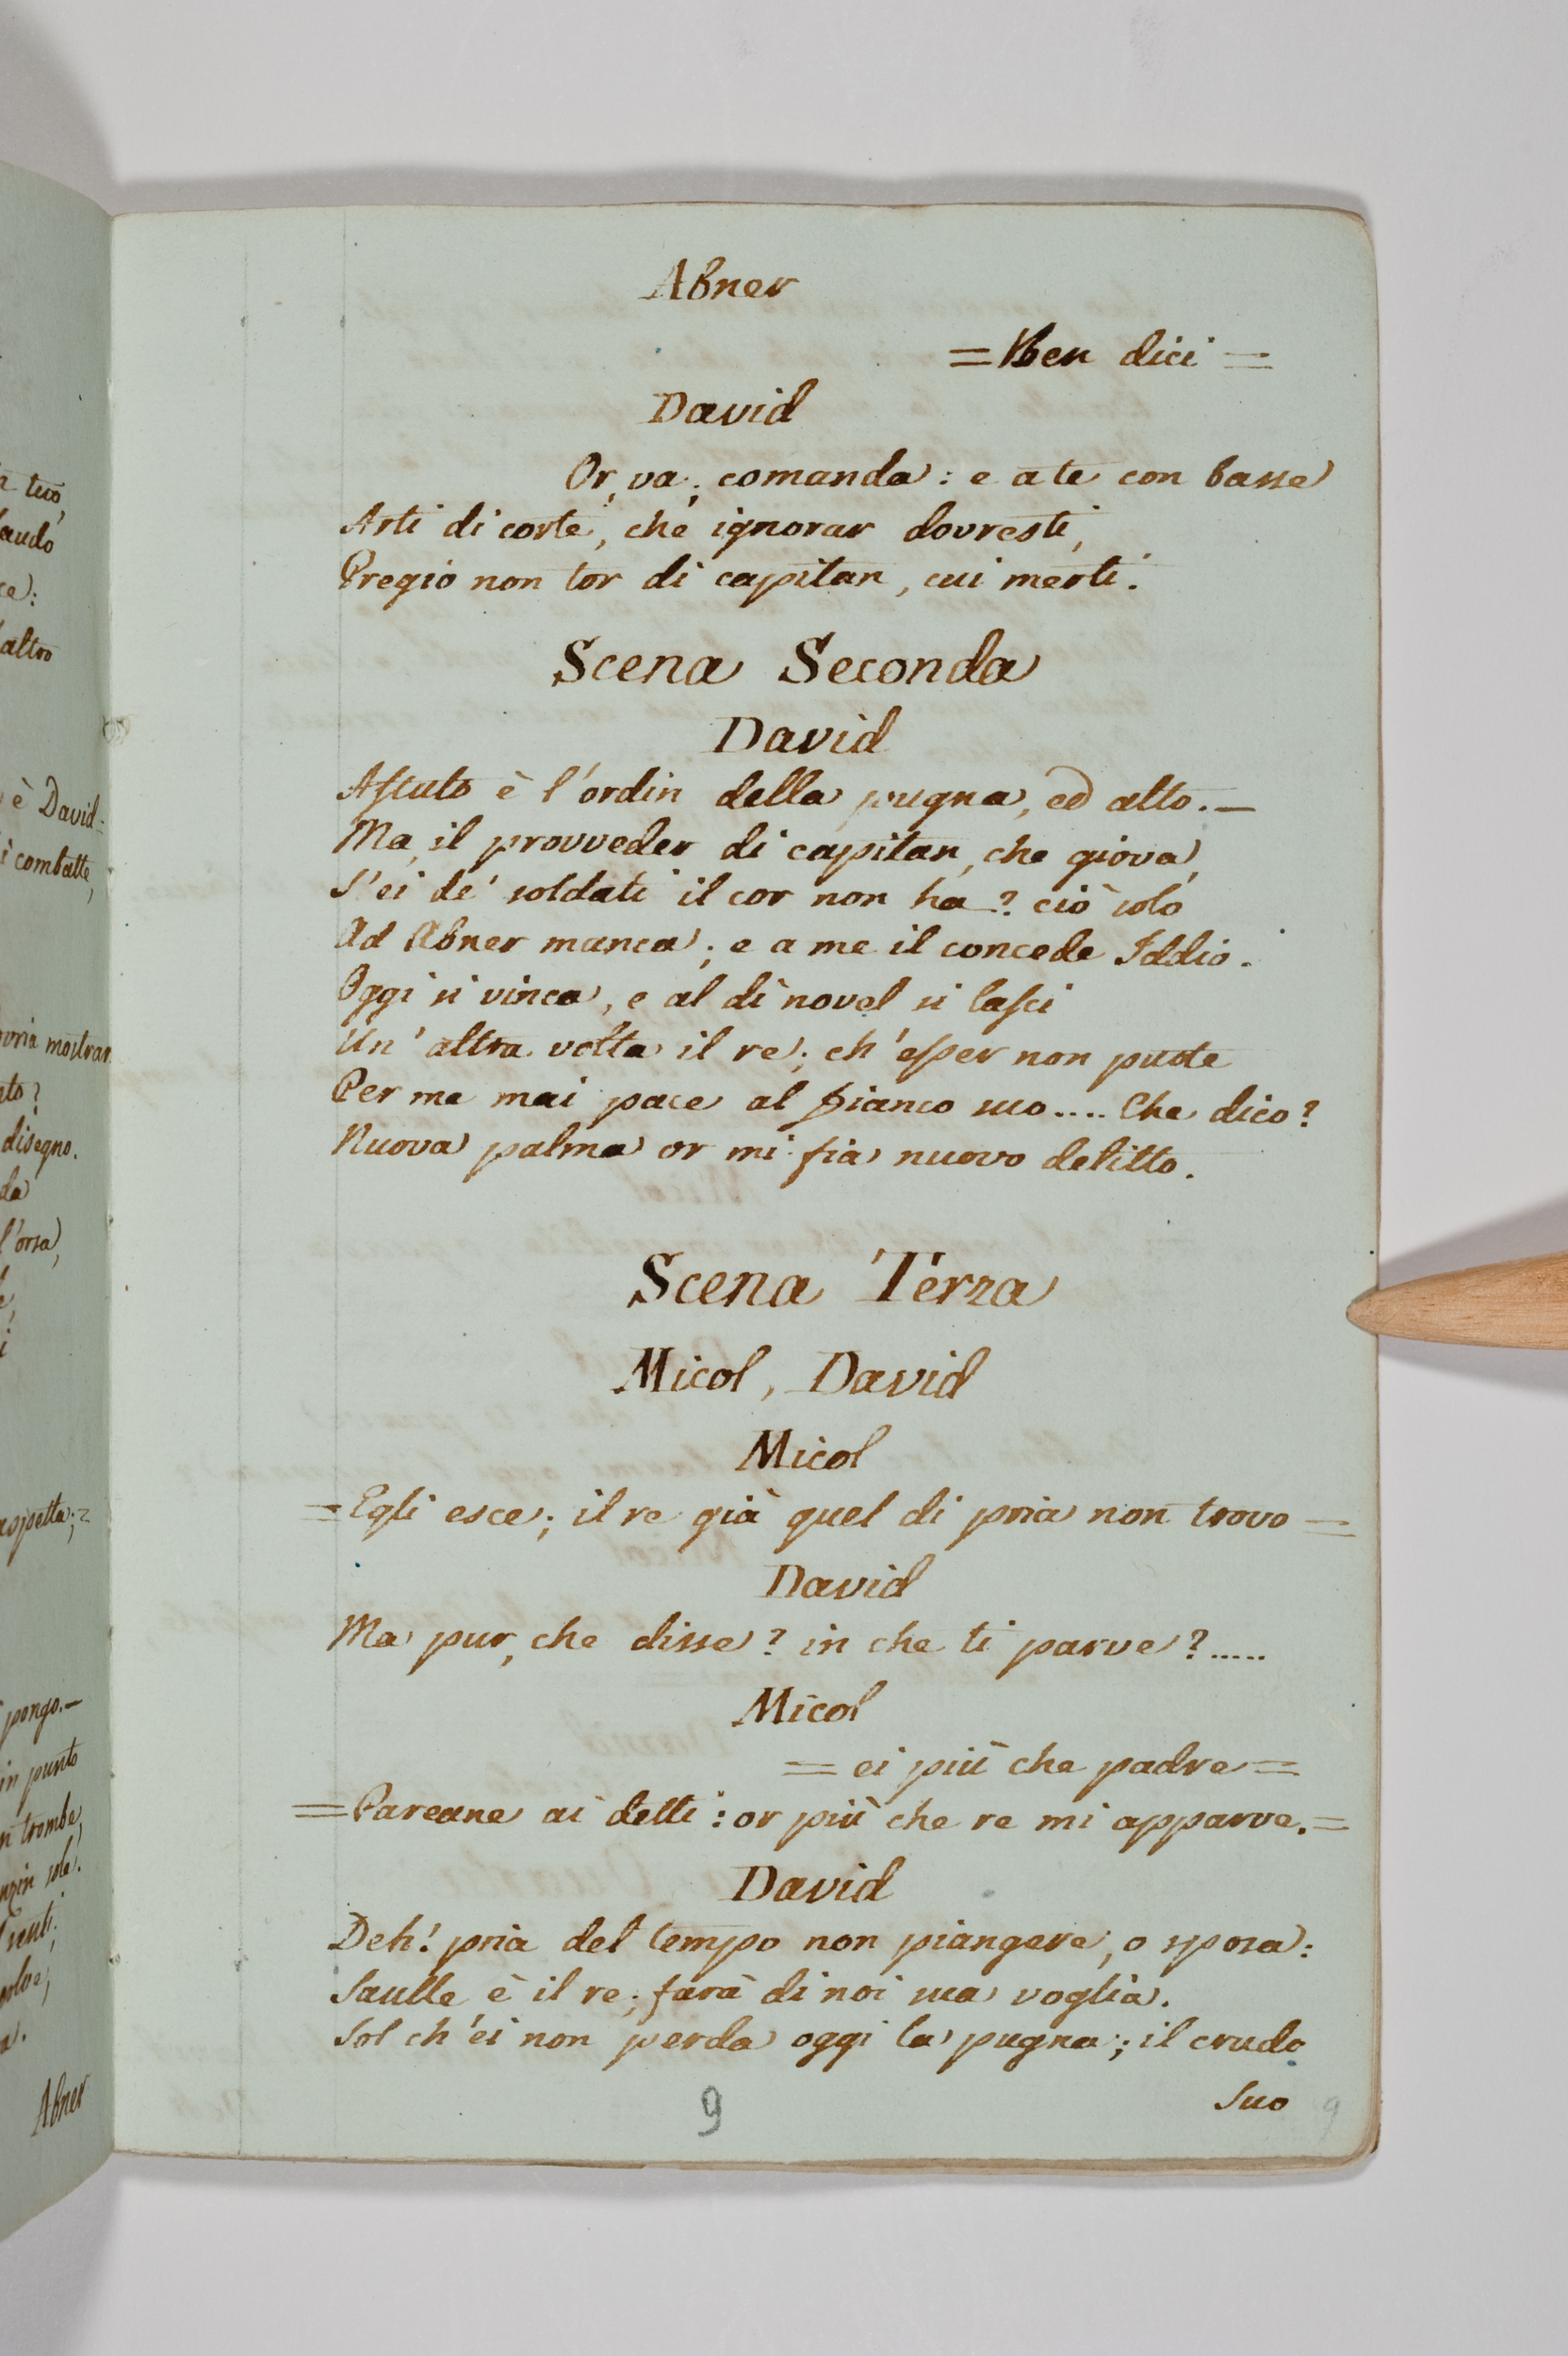 n tuo,
laudo
ce:
altro
è David-
i combatte,
mostrar
ato?
disegno.
da
l'orsa,
aspetta;=
pongo.—
in punto
n trombe,
Abner
Abner
= Ben dici =
David
Or, va; comanda: e a te con basse
Arti di corte, che ignorar dovresti,
Pregio non tor di capitan, cui merti.
Scena Seconda
David
Astuto è l'ordin della pugna, ed alto.—
Ma, il provveder di capitan, che giova,
S'ei de' soldati il cor non ha? ciò solo
Ad Abner manca; e a me il concede Iddio.
Oggi si vinca, e al dì novel si lasci
Un' altra volta il re; ch'esser non puote
Per me mai pace al fianco suo.... Che dico?
Nuova palma or mi fia nuovo delitto.
Scena Terza
Micol, David
Micol
= Egli esce; il re già quel di pria non trovo =
David
Ma pur, che disse? in che ti parve?.....
Micol
= ei più che padre =
= Pareane ai detti: or più che re mi apparve. =
David
Deh! pria del tempo non piangere, o sposa:
Saulle è il re; farà di noi sua voglia.
Sol ch'ei non perda oggi la pugna; il crudo
Suo
9
9